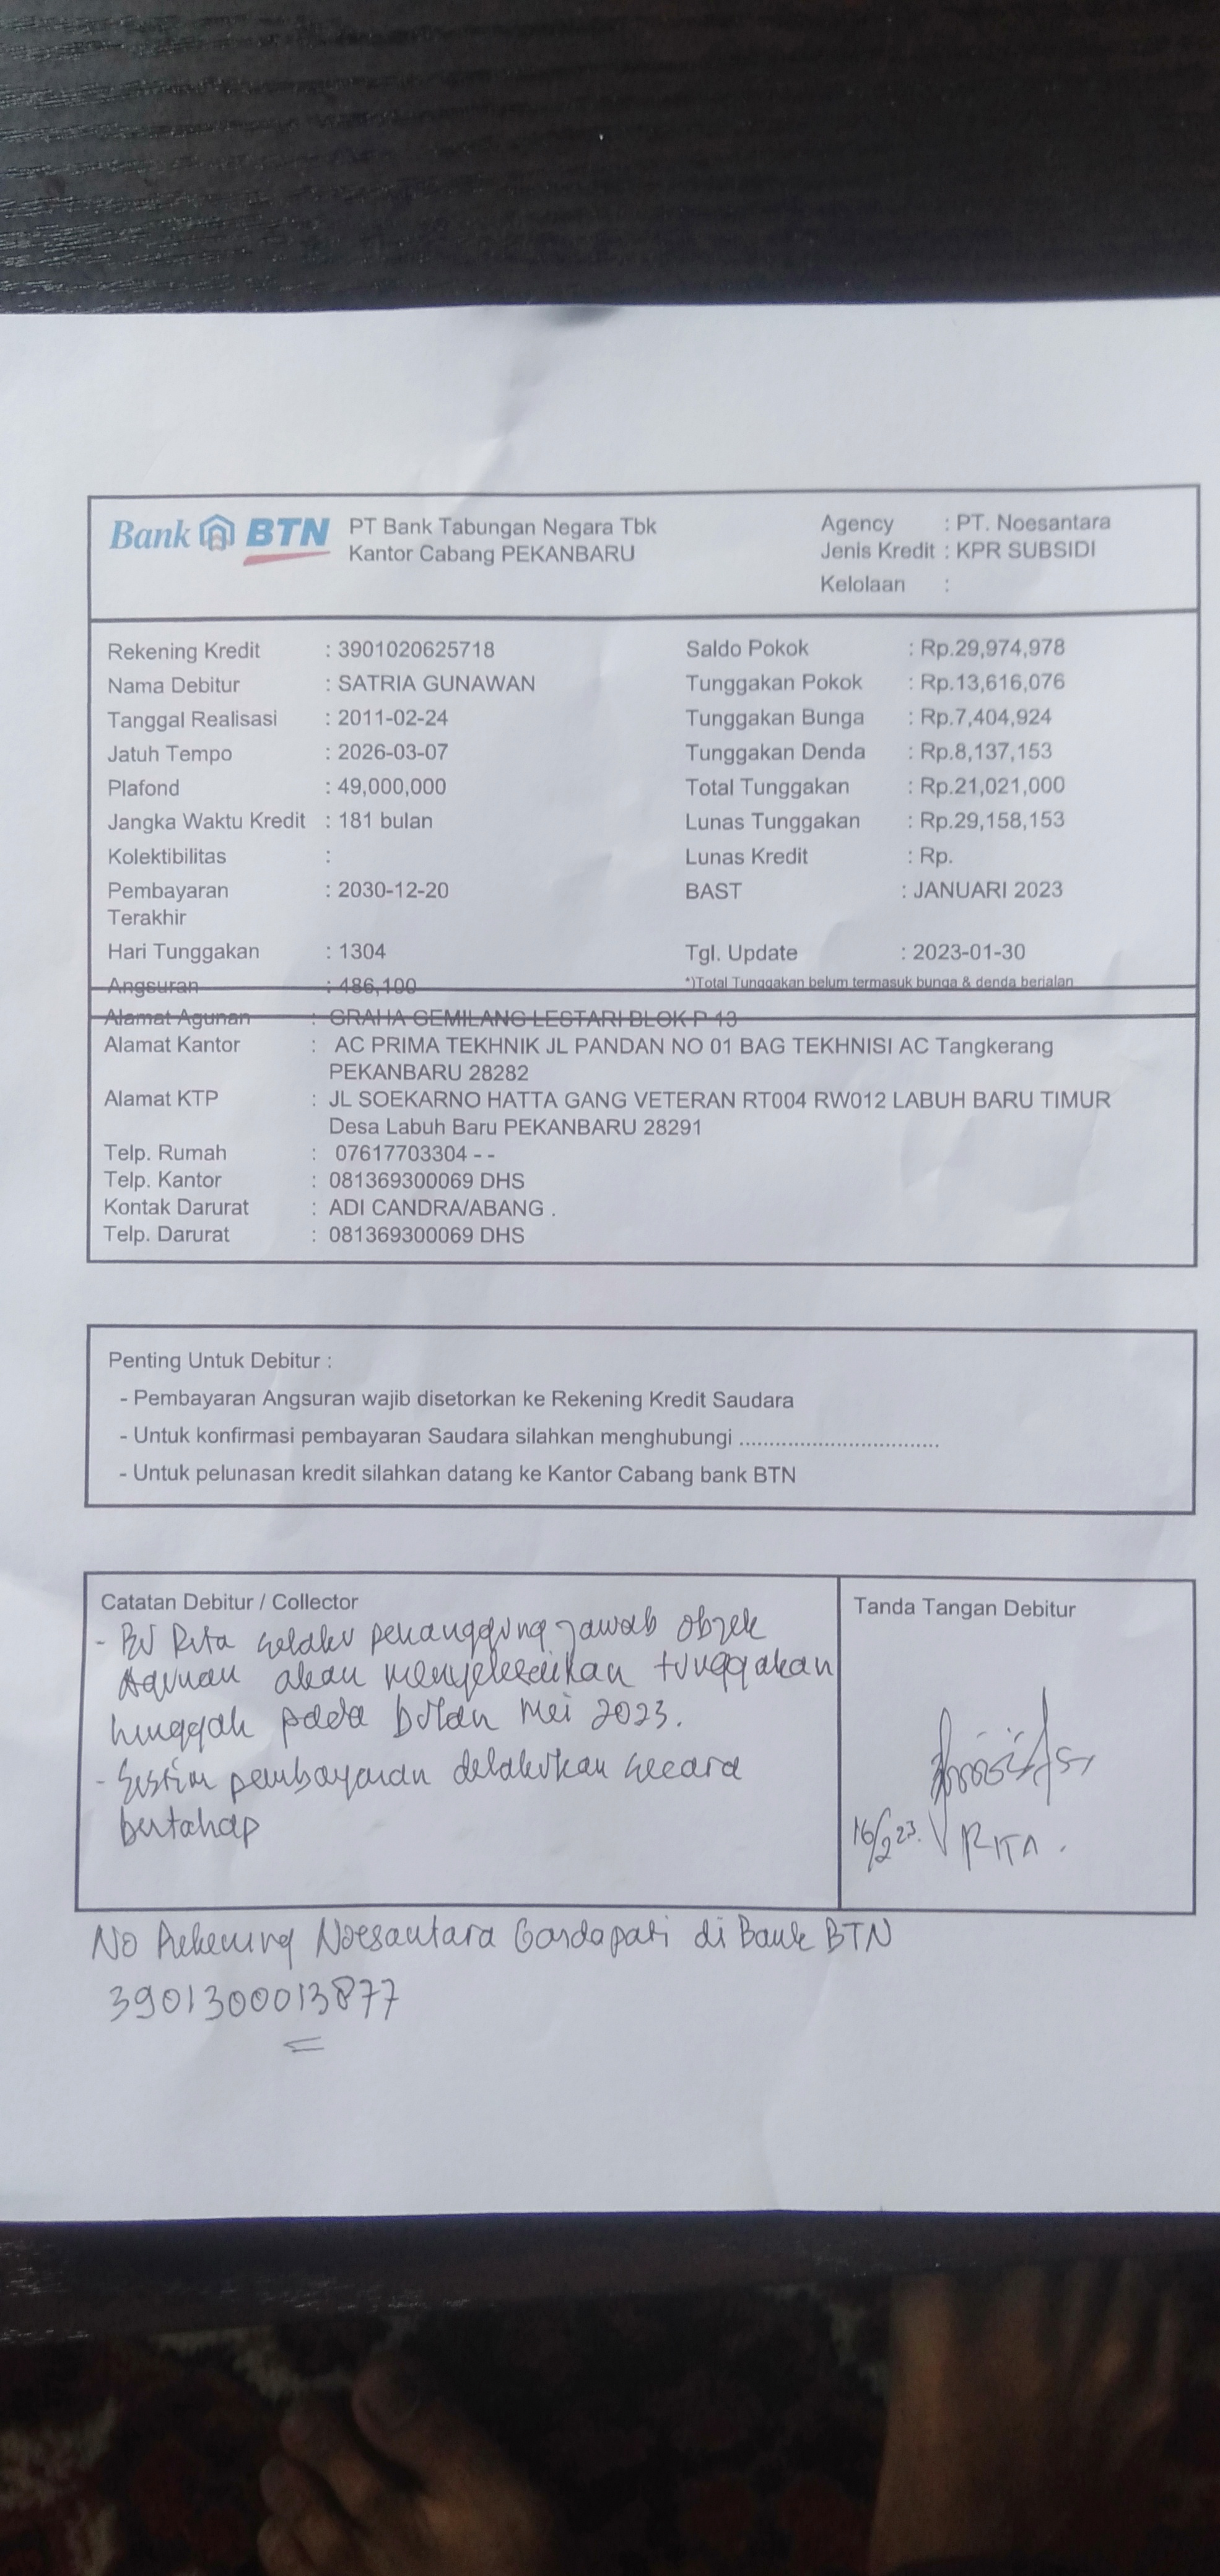 Bank BTN PT Bank Tabungan Negara Tbk
Kantor Cabang PEKANBARU
Agency : PT. Noesantara
Jenis Kredit : KPR SUBSIDI
Kelolaan :
Rekening Kredit : 3901020625718
Nama Debitur : SATRIA GUNAWAN
Tanggal Realisasi : 2011-02-24
Jatuh Tempo : 2026-03-07
Plafond : 49,000,000
Jangka Waktu Kredit : 181 bulan
Kolektibilitas :
Pembayaran : 2030-12-20
Terakhir
Hari Tunggakan : 1304
Angsuran : 486,100
Saldo Pokok : Rp.29,974,978
Tunggakan Pokok : Rp.13,616,076
Tunggakan Bunga : Rp.7,404,924
Tunggakan Denda : Rp.8,137,153
Total Tunggakan : Rp.21,021,000
Lunas Tunggakan : Rp.29,158,153
Lunas Kredit : Rp.
BAST : JANUARI 2023
Tgl. Update : 2023-01-30
*)Total Tunggakan belum termasuk bunga & denda berjalan
Alamat Agunan : GRAHA GEMILANG LESTARI BLOK P 13
Alamat Kantor : AC PRIMA TEKHNIK JL PANDAN NO 01 BAG TEKHNISI AC Tangkerang
PEKANBARU 28282
Alamat KTP : JL SOEKARNO HATTA GANG VETERAN RT004 RW012 LABUH BARU TIMUR
Desa Labuh Baru PEKANBARU 28291
Telp. Rumah : 07617703304 - -
Telp. Kantor : 081369300069 DHS
Kontak Darurat : ADI CANDRA/ABANG .
Telp. Darurat : 081369300069 DHS
Penting Untuk Debitur :
- Pembayaran Angsuran wajib disetorkan ke Rekening Kredit Saudara
- Untuk konfirmasi pembayaran Saudara silahkan menghubungi ..................................
- Untuk pelunasan kredit silahkan datang ke Kantor Cabang bank BTN
Catatan Debitur / Collector
- Bu Rita selaku penanggung jawab objek
Agunan akan menyelesaikan tunggakan
hinggah pada bulan Mei 2023.
- Sistim pembayaran dilakukan secara
bertahap
Tanda Tangan Debitur
16/2 23. RITA .
No Rekening Noesantara Gardapati di Bank BTN
3901300013877